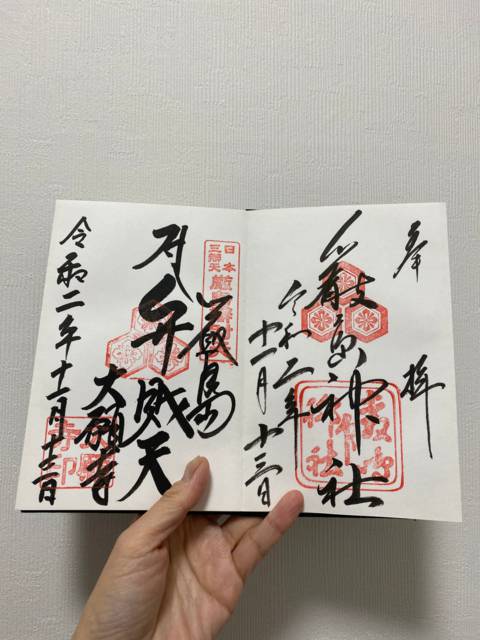 奉拝
厳島神社
令和二年
十一月十三日
日本
三辯天
厳島
弁財天
大願寺
令和二年十一月十三日